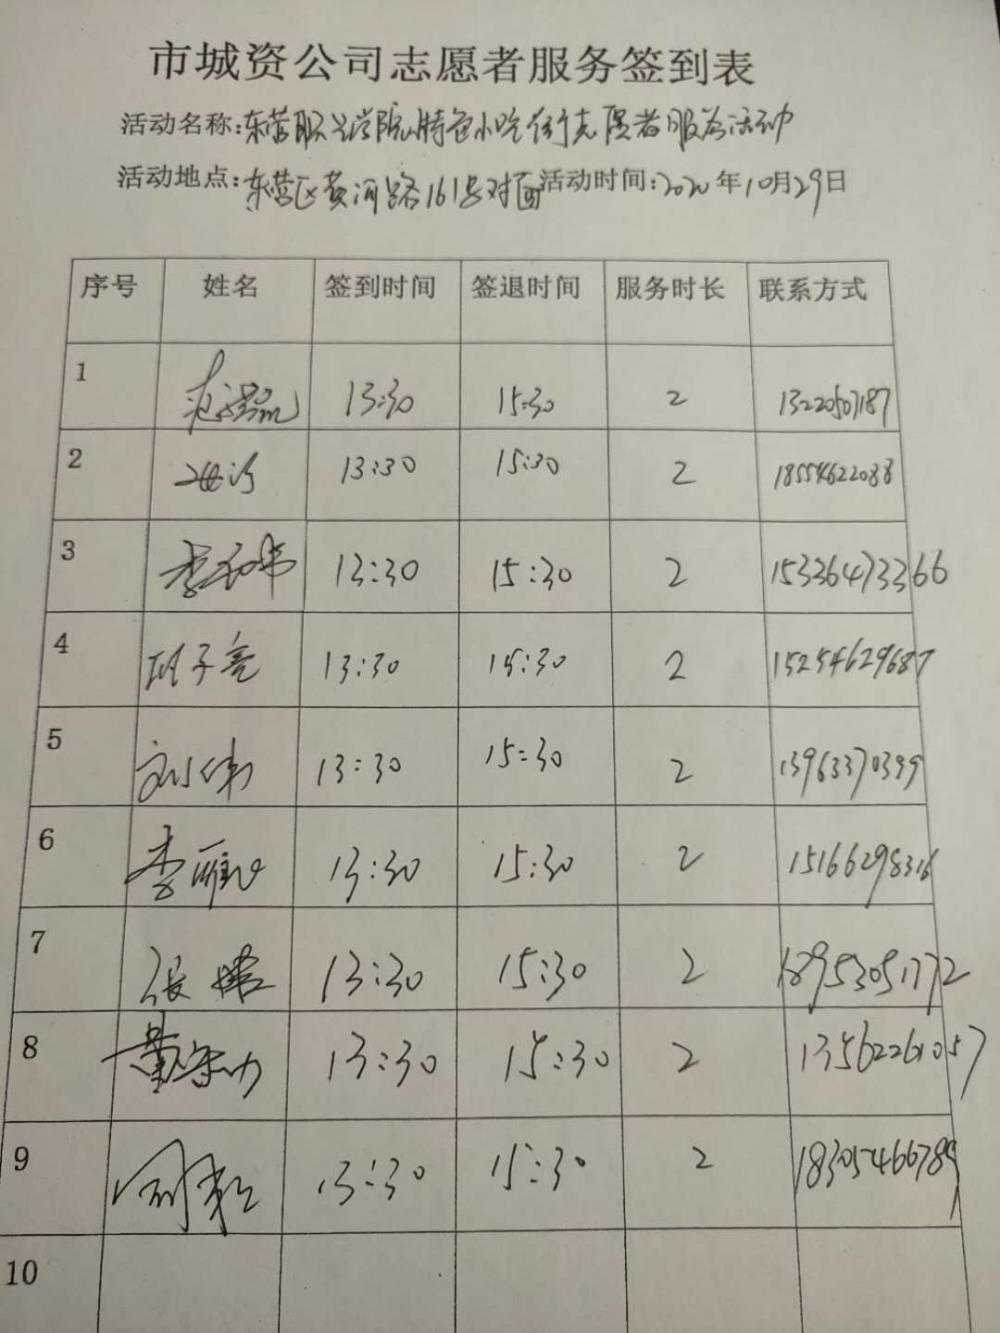 市城资公司志愿者服务签到表
活动名称:东营职业学院特色小吃街志愿者服务活动
活动地点:东营区黄河路161号对面 活动时间:2020年10月29日
序号 姓名 签到时间 签退时间 服务时长 联系方式
1 13:30 15:30 2 13220507187
2 13:30 15:30 2 18554622088
3 13:30 15:30 2 15336473366
4 邱子亮 13:30 15:30 2 15254629687
5 刘伟 13:30 15:30 2 13963370399
6 李雁 13:30 15:30 2 15166298316
7 张 13:30 15:30 2 18953051772
8 董 13:30 15:30 2 13562261057
9 13:30 15:30 2 18305466789
10